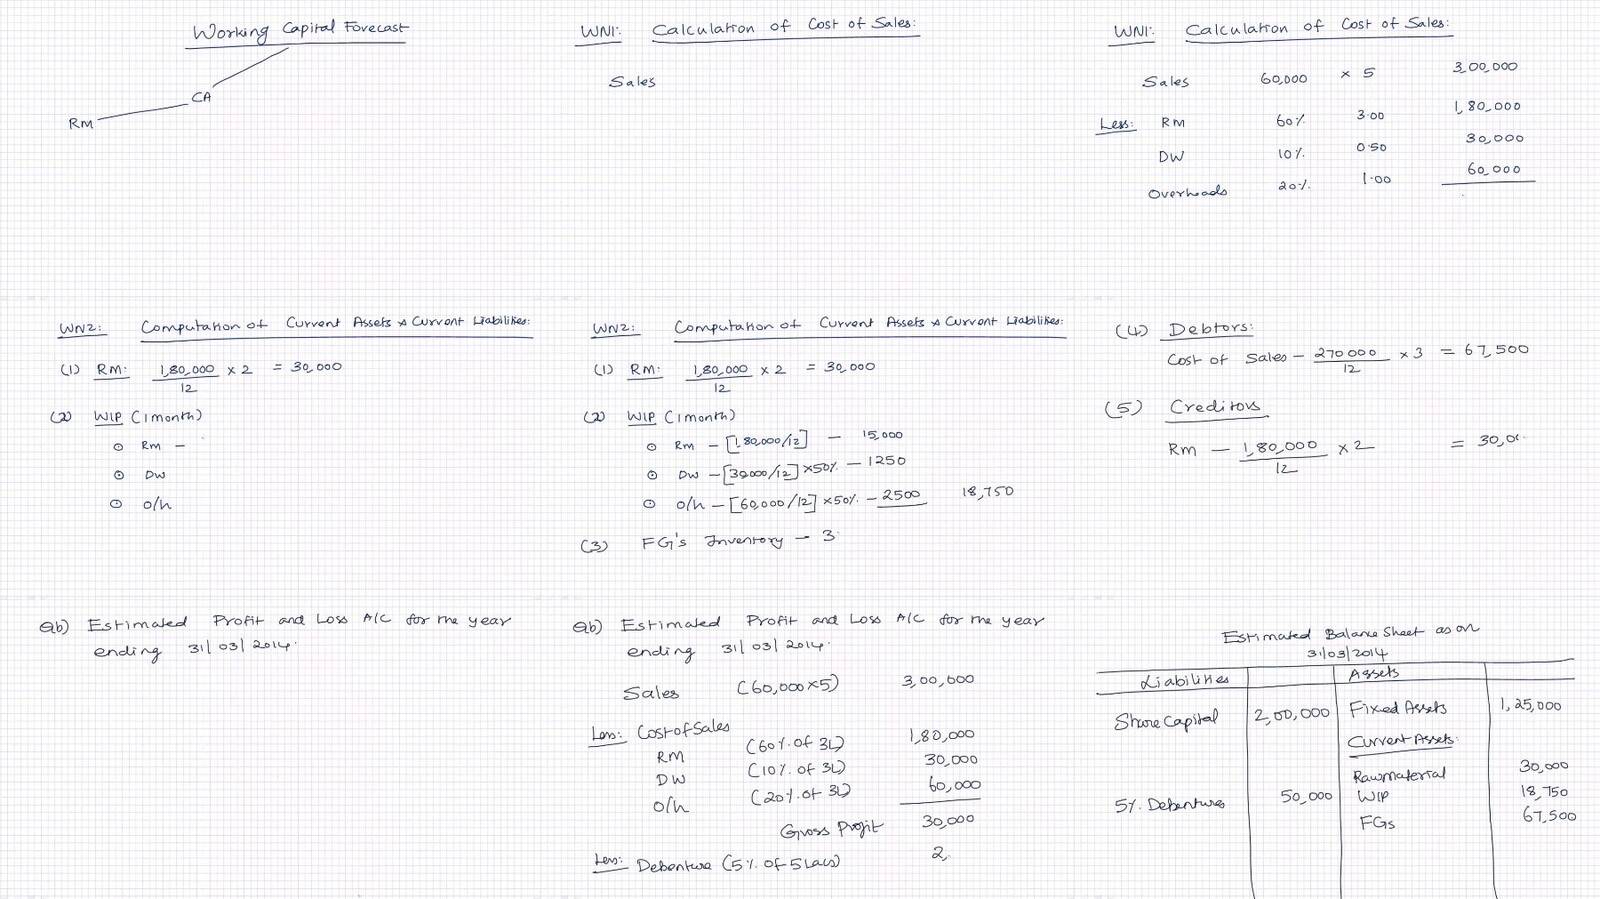 Working Capital Forecast
CA
RM
WN1: Calculation of Cost of Sales:
Sales
WN1: Calculation of Cost of Sales:
Sales 60,000 x 5 3,00,000
Less: RM 60% 3.00 1,80,000
DW 10% 0.50 30,000
Overheads 20% 1.00 60,000
WN2: Computation of Current Assets & Current Liabilities:
(1) RM: 1,80,000/12 x 2 = 30,000
(2) WIP (1 month)
RM -
DW
O/h
WN2: Computation of Current Assets & Current Liabilities:
(1) RM: 1,80,000/12 x 2 = 30,000
(2) WIP (1 month)
RM - [1,80,000/12] - 15,000
DW - [30000/12] x 50% - 1250
O/h - [60,000/12] x 50% - 2500 18,750
(3) FG's Inventory - 3
(4) Debtors:
Cost of Sales - 270000/12 x 3 = 67,500
(5) Creditors
RM - 1,80,000/12 x 2 = 30,0
Qb) Estimated Profit and Loss A/C for the year
ending 31/03/2014.
Qb) Estimated Profit and Loss A/C for the year
ending 31/03/2014.
Sales (60,000x5) 3,00,000
Less: Cost of Sales
RM (60% of 3L) 1,80,000
DW (10% of 3L) 30,000
O/h (20% of 3L) 60,000
Gross Profit 30,000
Less: Debenture (5% of 5 Lacs) 2,
Estimated Balance Sheet as on
31/03/2014
Liabilities Assets
Share Capital 2,00,000 Fixed Assets 1,25,000
Current Assets:
Raw material 30,000
5% Debentures 50,000 WIP 18,750
FGs 67,500